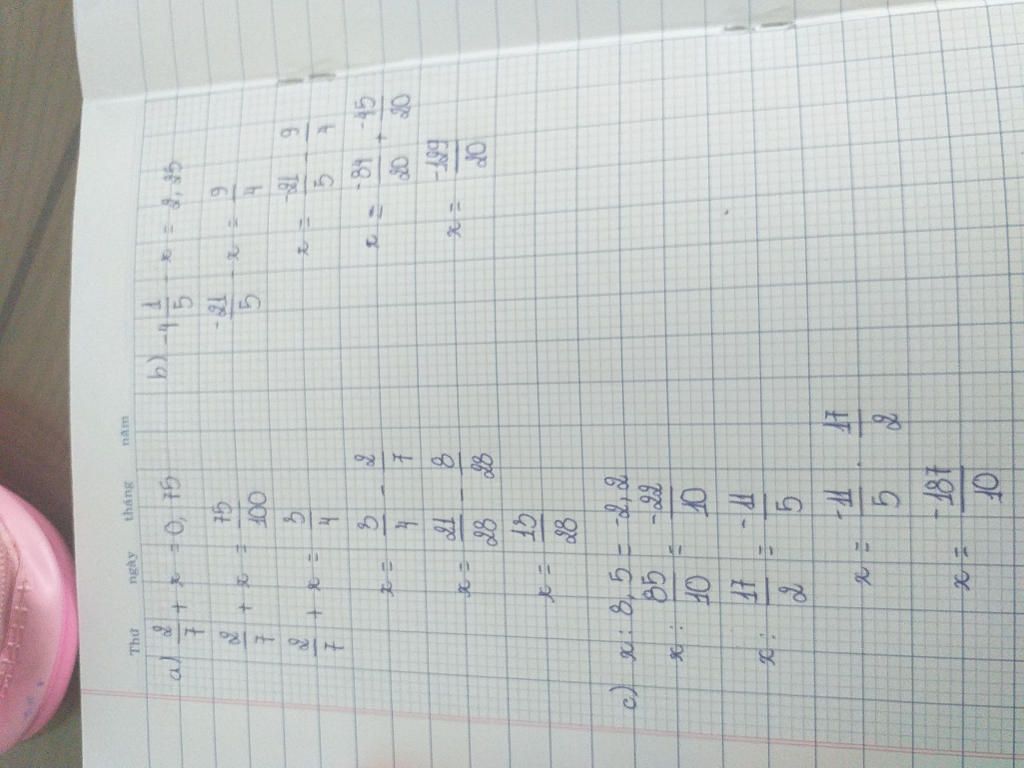 Thứ ngày tháng năm
a) 2/7 + x = 0,75
2/7 + x = 75/100
2/7 + x = 3/4
x = 3/4 - 2/7
x = 21/28 - 8/28
x = 13/28
b) -4 1/5 - x = 2,25
-21/5 - x = 9/4
x = -21/5 - 9/4
x = -84/20 + -45/20
x = -129/20
c) x : 8,5 = -2,2
x : 85/10 = -22/10
x : 17/2 = -11/5
x = -11/5 . 17/2
x = -187/10